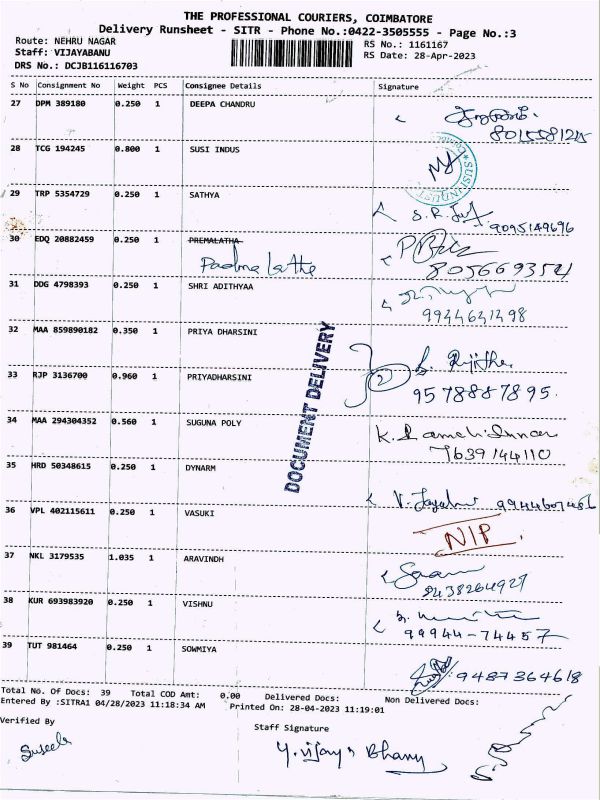 THE PROFESSIONAL COURIERS, COIMBATORE
Delivery Runsheet - SITR - Phone No.:0422-3505555 - Page No.:3
Route: NEHRU NAGAR RS No.: 1161167
Staff: VIJAYABANU RS Date: 28-Apr-2023
DRS No.: DCJB116116703
S No Consignment No Weight PCS Consignee Details Signature
27 DPM 389180 0.250 1 DEEPA CHANDRU
28 TCG 194245 0.800 1 SUSI INDUS
29 TRP 5354729 0.250 1 SATHYA
9095149696
30 EDQ 20882459 0.250 1 PREMALATHA
Padma latha
805669354
31 DDG 4798393 0.250 1 SHRI ADITHYAA
9944641498
32 MAA 859890182 0.350 1 PRIYA DHARSINI
33 RJP 3136700 0.960 1 PRIYADHARSINI
2
9578887895.
DOCUMENT DELIVERY
34 MAA 294304352 0.560 1 SUGUNA POLY
7639144110
35 HRD 50348615 0.250 1 DYNARM
36 VPL 402115611 0.250 1 VASUKI
NIP
37 NKL 3179535 1.035 1 ARAVINDH
38 KUR 693983920 0.250 1 VISHNU
99944-74457
39 TUT 981464 0.250 1 SOWMIYA
9487364618
Total No. Of Docs: 39 Total COD Amt: 0.00 Delivered Docs: Non Delivered Docs:
Entered By :SITRA1 04/28/2023 11:18:34 AM Printed On: 28-04-2023 11:19:01
Verified By Staff Signature
Suseela
Y. Vijaya Bhanu